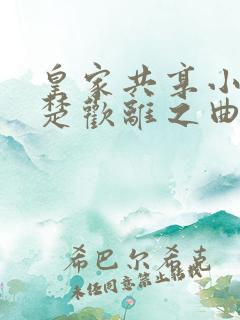 皇家共享小
楚歡離之曲
希巴尔希克
未任同意禁止转载